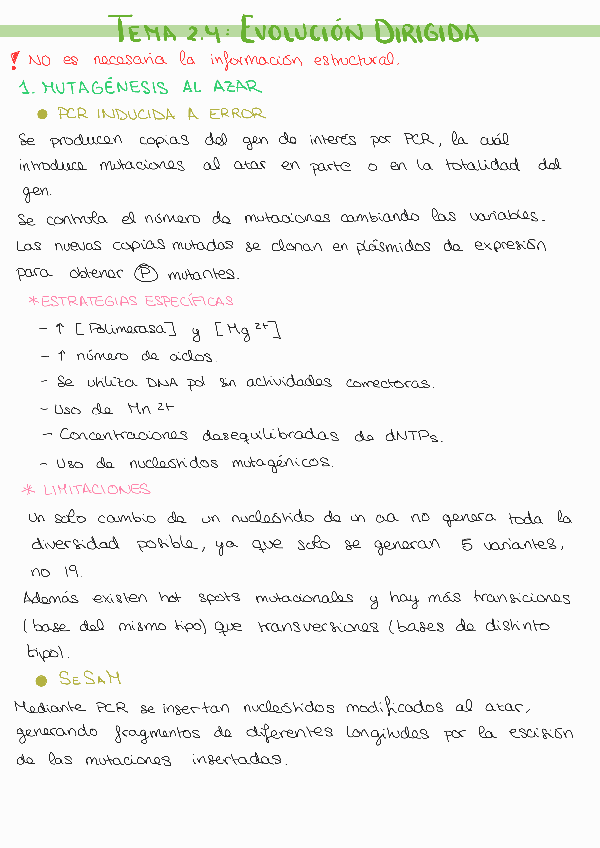 TEMA 2.4: EVOLUCIÓN DIRIGIDA
! NO es necesaria la información estructural.
1. MUTAGÉNESIS AL AZAR
● PCR INDUCIDA A ERROR
Se producen copias del gen de interés por PCR, la cuál
introduce mutaciones al azar en parte o en la totalidad del
gen.
Se controla el número de mutaciones cambiando las variables.
Las nuevas copias mutadas se clonan en plásmidos de expresión
para obtener Ⓟ mutantes.
*ESTRATEGIAS ESPECÍFICAS
- ↑ [Polimerasa] y [Mg²⁺]
- ↑ número de ciclos.
- Se utiliza DNA pol sin actividades correctoras.
- Uso de Mn²⁺
- Concentraciones desequilibradas de dNTPs.
- Uso de nucleótidos mutagénicos.
* LIMITACIONES
Un solo cambio de un nucleótido de un aa no genera toda la
diversidad posible, ya que solo se generan 5 variantes,
no 19.
Además existen hot spots mutacionales y hay más transiciones
(base del mismo tipo) que transversiones (bases de distinto
tipo).
● SeSaM
Mediante PCR se insertan nucleótidos modificados al azar,
generando fragmentos de diferentes longitudes por la escisión
de las mutaciones insertadas.